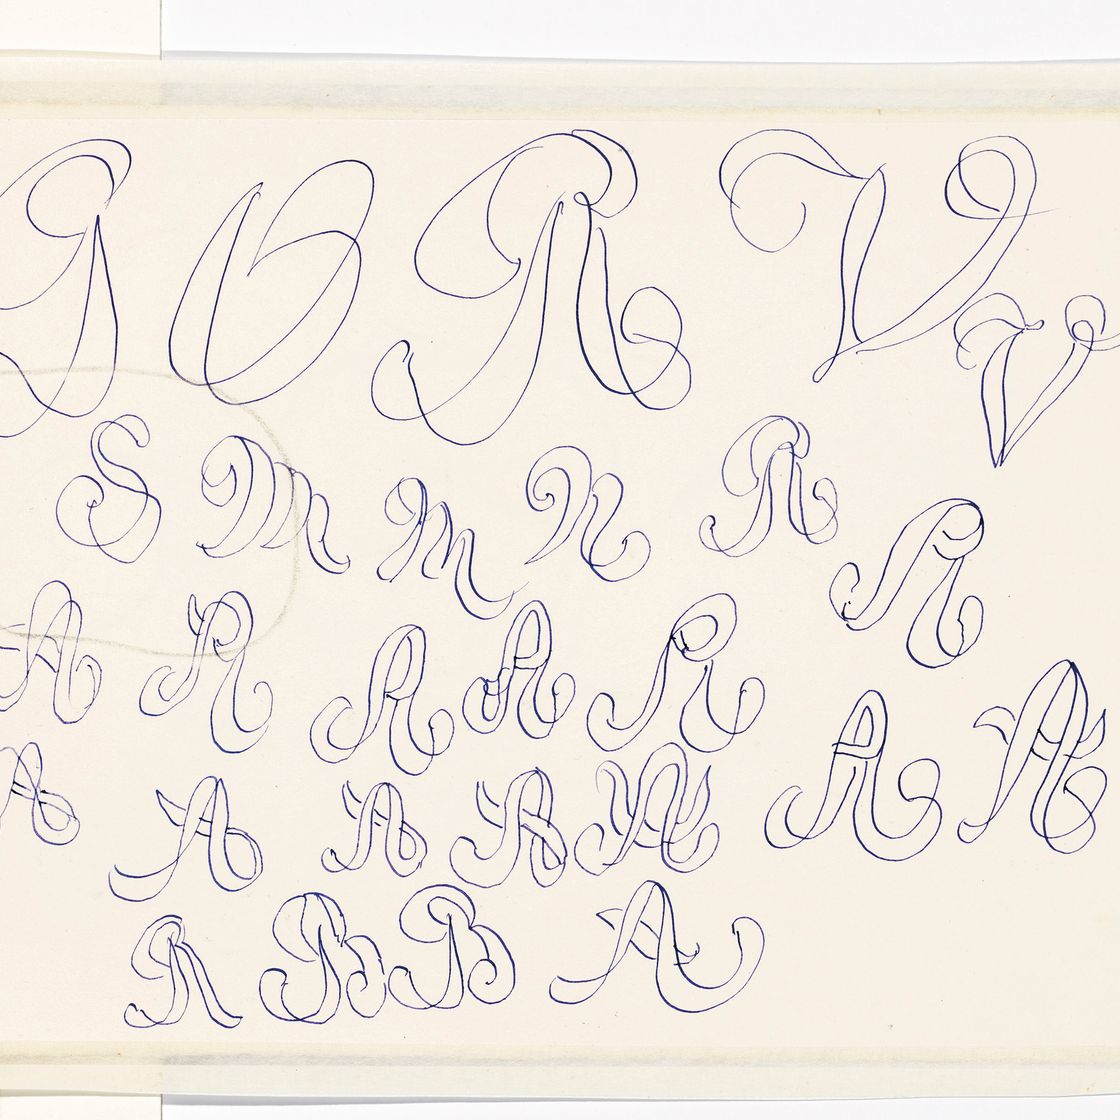 G O R V
V
S M M N R
R
A R R R R
A A
A A A A A
R B B A